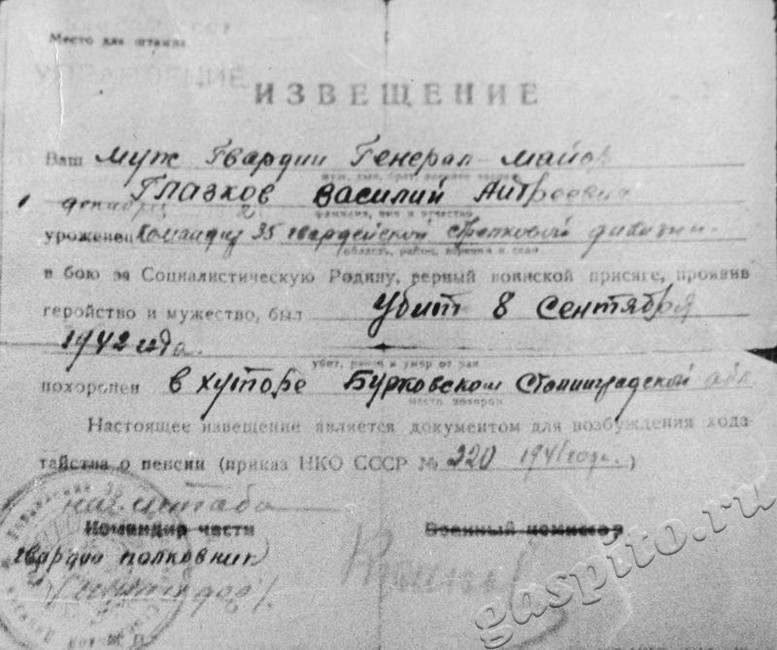 Место для штампа
ИЗВЕЩЕНИЕ
Ваш муж Гвардии Генерал-майор
Глазков Василий Андреевич
фамилия, имя и отчество
уроженец Командир 35 гвардейской стрелковой дивизии
(область, район, деревня и село)
в бою за Социалистическую Родину, верный воинской присяге, проявив
геройство и мужество, был убит 8 Сентября
1942 года.
убит, ранен и умер от ран
похоронен в хуторе Бурковском Сталинградской обл
место похорон
Настоящее извещение является документом для возбуждения хода-
тайства о пенсии (приказ НКО СССР № 220 1941 года.)
нач штаба
Командир части Военный комиссар
гвардии полковник
gaspito.ru